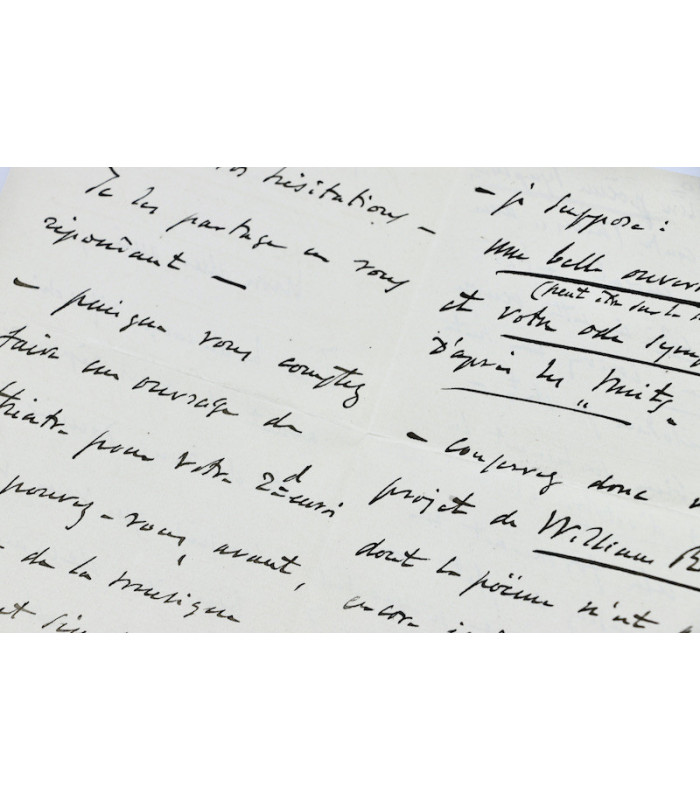 hésitations –
Je les partage en vous
répondant —
– puisque vous comptez
faire un ouvrage de
théâtre pour votre 2d envoi
pouvez-vous, avant,
de la musique
– je suppose :
une belle ouver
(peut être sur la
et votre ode symp
d'après les „ Nuits. –
– conservez donc
projet de William R
dont le poëme n'est
encore